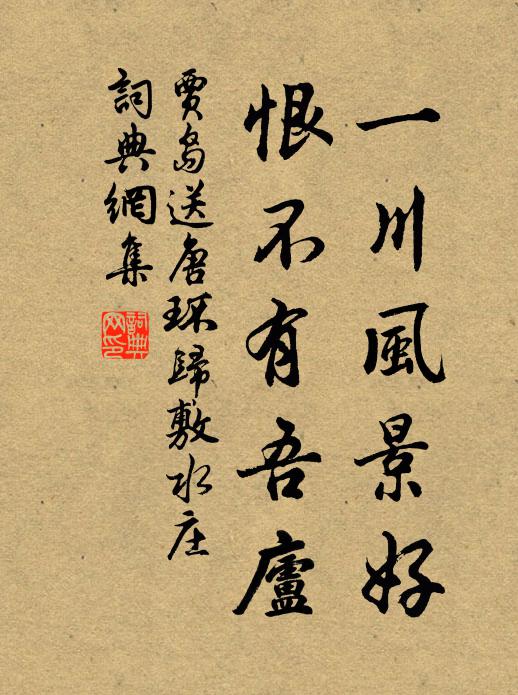 一川風景好
恨不有吾廬
賈島送唐环歸敷水庄
詞典網集
詞典网印